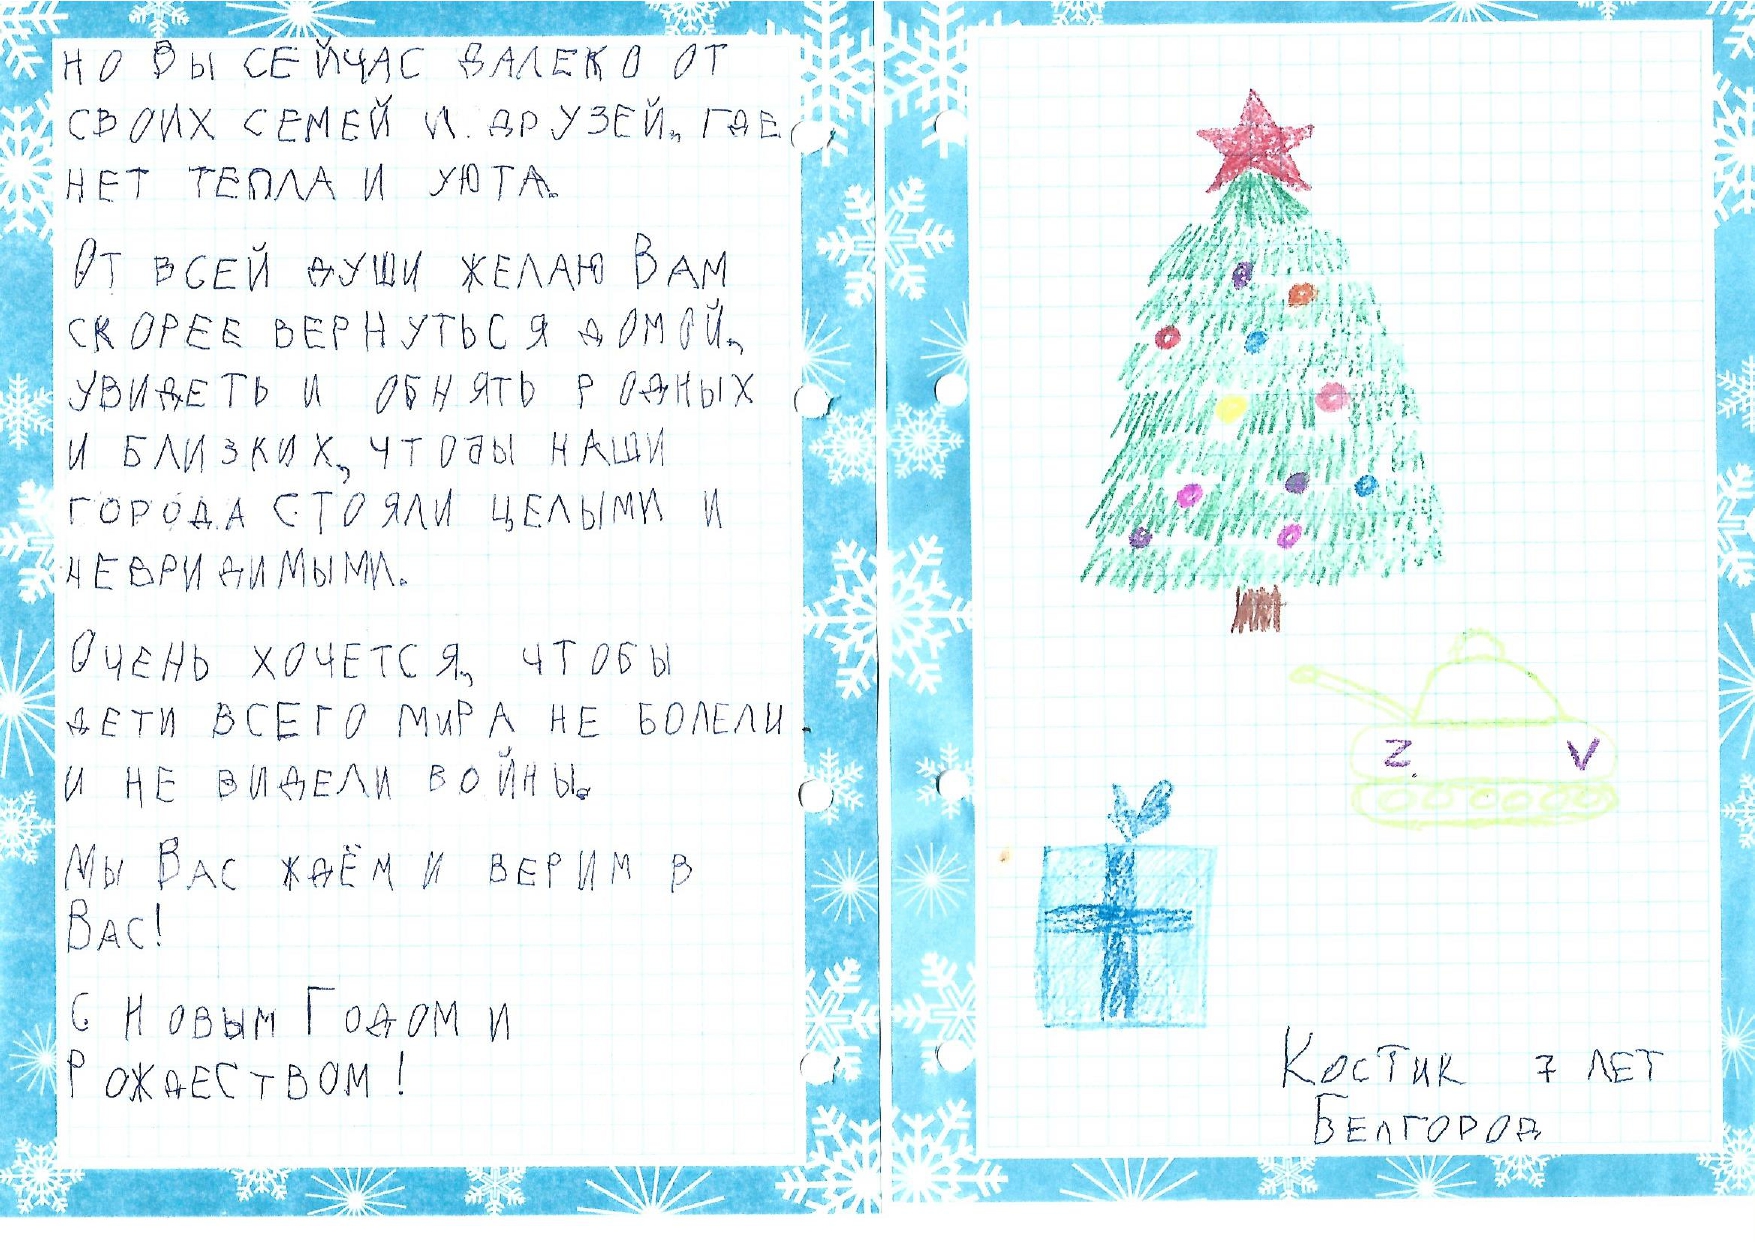 но Вы сейчас далеко от
своих семей и друзей, где
нет тепла и уюта.
От всей души желаю Вам
скорее вернуться домой,
увидеть и обнять родных
и близких, чтобы наши
города стояли целыми и
невридимыми.
Очень хочется, чтобы
дети всего мира не болели
и не видели войны.
Мы Вас ждём и верим в
Вас!
С Новым Годом и
Рождеством!
Z V
Костик 7 лет
Белгород